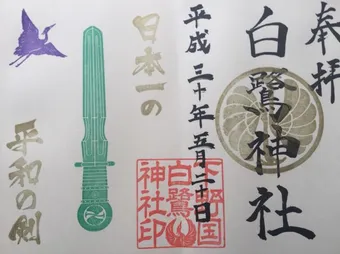 奉拝
白鷺神社
平成三十年五月二十日
下野国
白鷺
神社印
日本一の
平和の剣